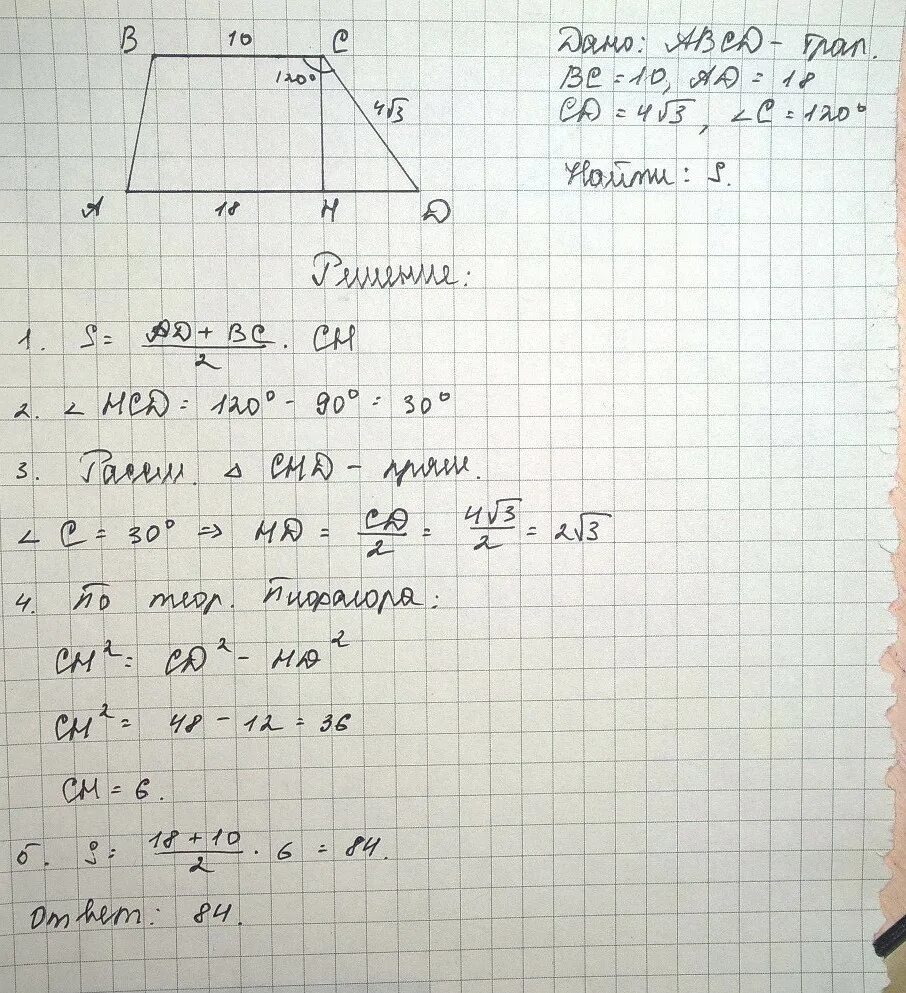 B 10 C
120°
4√3
A 18 H D
Дано: ABCD - трап.
BC = 10, AD = 18
CD = 4√3, ∠C = 120°
Найти: S.
Решение:
1. S = (AD + BC)/2 · CH
2. ∠HCD = 120° - 90° = 30°
3. Рассм. △ CHD - прям.
∠C = 30° ⇒ HD = CD/2 = 4√3/2 = 2√3
4. По теор. Пифагора:
CH² = CD² - HD²
CH² = 48 - 12 = 36
CH = 6.
5. S = (18 + 10)/2 · 6 = 84.
Ответ: 84.